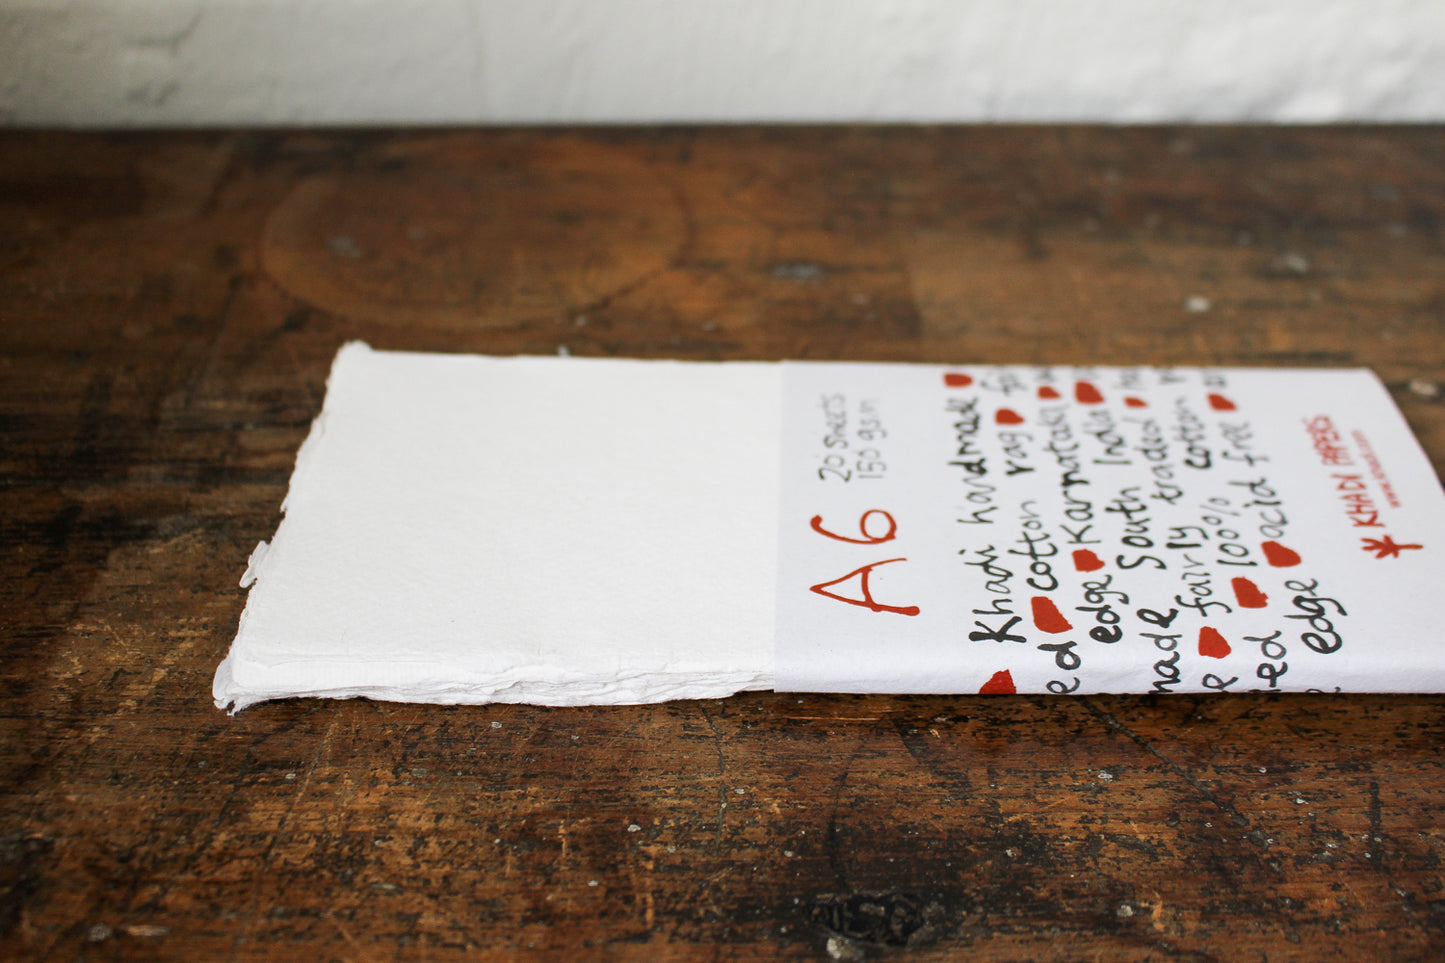 A6
20 sheets
150 gsm
Khadi handmade
ed cotton rag
edge Karnataka
made South India
fairly traded
ed 100% cotton
edge acid free
KHADI PAPERS
www.khadi.com